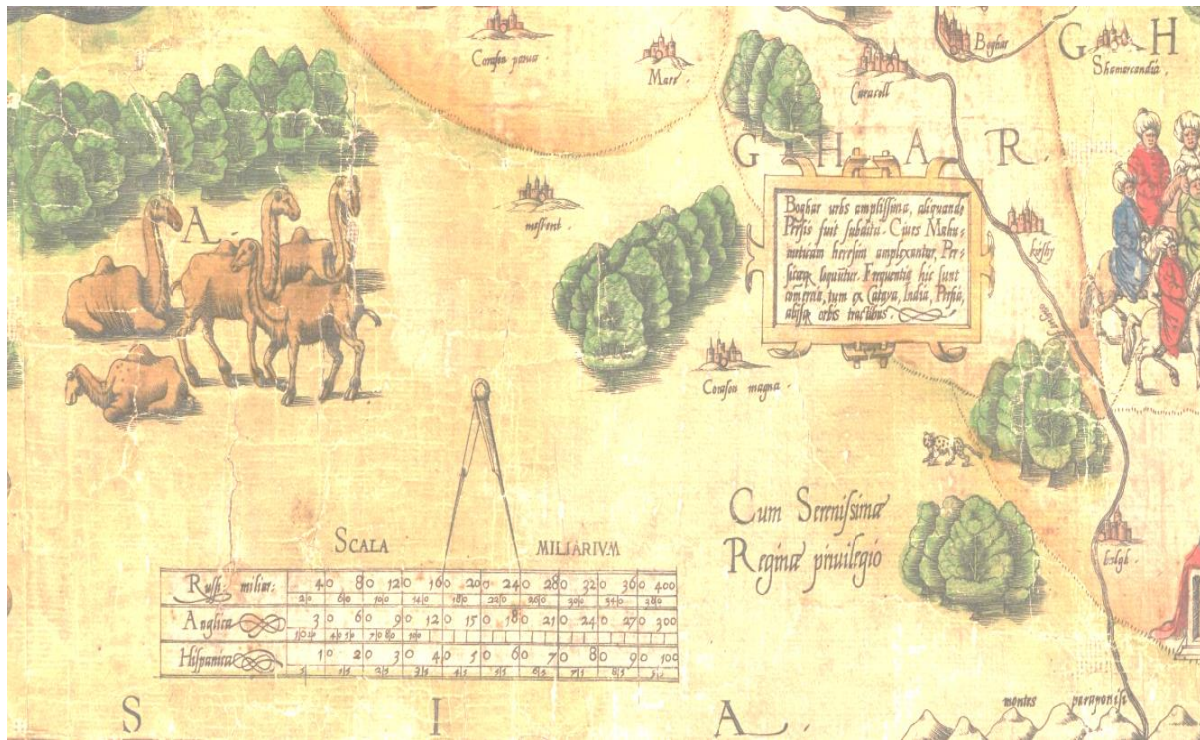 Corasan parua
Mare
Boghar
Shamarcandia
G H
Caracoll
G H A R
A
Boghar urbs amplissima, aliquando
Persis fuit subdita. Ciues Mahu-
meticam heresim amplexantur, Per-
sicaq loquūtur. Frequentia hic sunt
comercia, tum ex Cataya, India, Persia,
alijsq orbis tractibus.
mesrent
Corasan magna
Cum Serenissimæ
Reginæ priuilegio
SCALA MILIARIVM
Russi: miliar: 40 80 120 160 200 240 280 320 360 400
20 60 100 140 180 220 260 300 340 380
Anglica 30 60 90 120 150 180 210 240 270 300
Hispanica 10 20 30 40 50 60 70 80 90 100
5 15 25 35 45 55 65 75 85
S I A
montes paraponisi